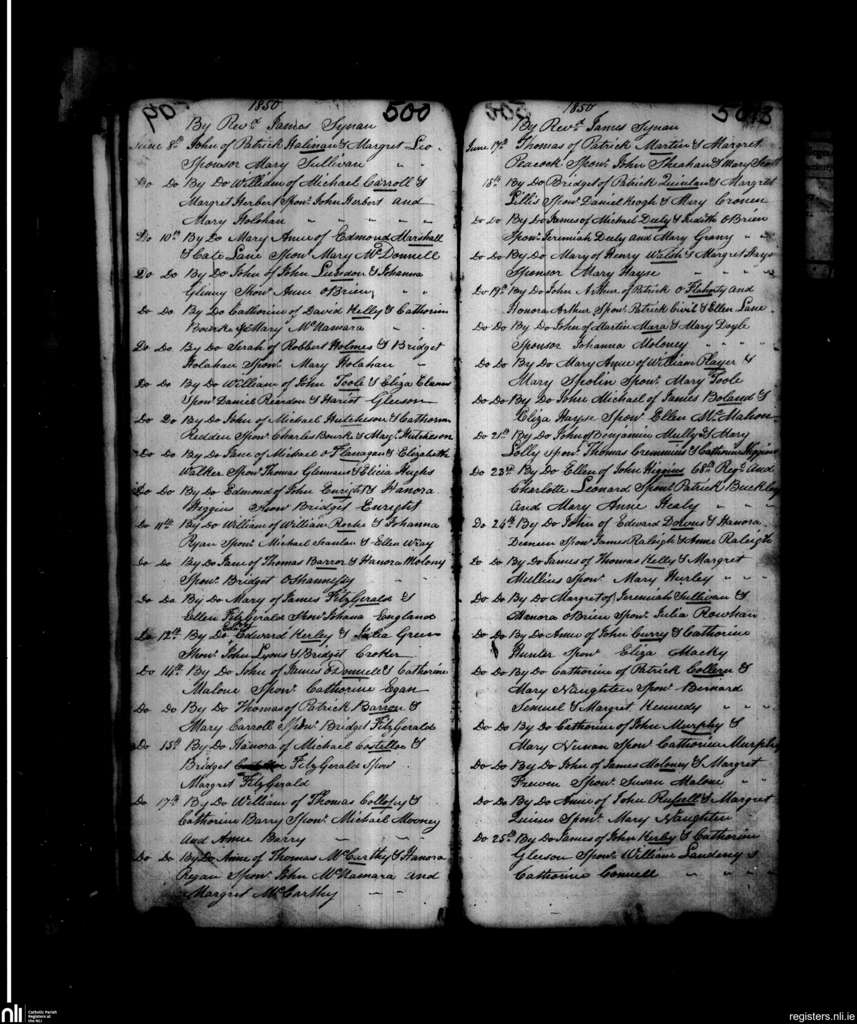 1850 500
By Revd. James Synan
June 8th John of Patrick Halinan & Margret Leo
Sponsor Mary Sullivan " "
Do Do By Do William of Michael Carroll &
Margret Herbert Sponr. John Herbert and
Mary Holohan " " " " "
Do 10th By Do Mary Anne of Edmond Marshall
& Cate Lane Sponr. Mary McDonnell
Do Do By Do John of John & Johanna
Sponr. Anne OBrien " "
Do Do By Do Catherine of David Kelly & Catherine
Bourke & Mary McNamara " "
Do Do By Do Sarah of Robbert Holmes & Bridget
Holahan Sponr. Mary Holahan "
Do Do By Do William of John Toole & Eliza
Sponr. Daniel Reardon & Hariot Gleeson
Do Do By Do John of Michael Hutcheson & Catherine
Redden Sponr. Charles Bourke & Mary Hutcheson
Do Do By Do Jane of Michael OFlanagan & Elizabeth
Walker Sponr. Thomas & Elicia Hughs
Do Do By Do Edmond of John Enright & Hanora
Higgins Sponr. Bridget Enright
Do 11th By Do William of William Roche & Johanna
Ryan Sponr. Michael Scanlan & Ellen Wray
Do Do By Do Jane of Thomas Barror & Hanora Molony
Sponr. Bridget OShannessy " "
Do Do By Do Mary of James FitzGerald &
Ellen FitzGerald Sponr. Johana England
Do 12th By Do Edward Kerley & Julia Green
Sponr. John Lyons & Bridget Croker
Do 14th By Do John of James ODonnell & Catherine
Malone Sponr. Catherine Egan
Do Do By Do Thomas of Patrick Barron &
Mary Carroll Sponr. Bridget FitzGerald
Do 15th By Do Hanora of Michael Costelloe &
Bridget FitzGerald Sponr.
Margret FitzGerald
Do 17th By Do William of Thomas Collopy &
Catherine Barry Sponr. Michael Mooney
and Anne Barry
Do Do By Do Anne of Thomas McCarthy & Hanora
Regan Sponr. John McNamara and
Margret McCarthy
1850
By Revd. James Synan
June 17th Thomas of Patrick Martin & Margret
Peacock Sponr. John Sheahan & Mary
18th By Do Bridget of Patrick Quinlan & Margret
Lillis Sponr. Daniel Keogh & Mary Cronin
Do Do By Do James of Michael Deely & Judith OBrien
Sponr. Jeremiah Deely and Mary Grany " "
Do Do By Do Mary of Henry Walsh & Margret Hays
Sponsor Mary Hayse " " " "
Do 19th By Do John Arthur of Patrick OFlaherty and
Honora Arthur Sponr. Patrick Civil & Ellen Lane
Do Do By Do John of Martin Mara & Mary Doyle
Sponsor Johanna Moloney " " " "
Do Do By Do Mary Anne of William Player &
Mary Spolin Sponr. Mary Toole
Do Do By Do John Michael of James Boland &
Eliza Hayse Sponr. Ellen McMahon
Do 21st By Do John of Benjamin Mully & Mary
Lolly Sponr. Thomas Cremmins & Catherine Higgins
Do 23rd By Do Ellen of John Higgins 68th Regt. and
Charlotte Leonard Sponr. Patrick Buckley
and Mary Anne Healy " " "
Do 24th By Do John of Edward Downs & Hanora
Dineen Sponr. James Raleigh & Anne Raleigh
Do Do By Do James of Thomas Kelly & Margret
Mellius Sponr. Mary Hurley " " "
Do Do By Do Margret of Jeremiah Sullivan &
Honora OBrien Sponr. Julia
Do Do By Do Anne of John Curry & Catherine
Hunter Sponr. Eliza Macky
Do Do By Do Catherine of Patrick Collern &
Mary Naughten Sponr. Bernard
Semuel & Margret Kennedy " " "
Do Do By Do Catherine of John Murphy &
Mary Nunan Sponr. Catherine Murphy
Do Do By Do John of James Maloney & Margret
Sponr. Susan Malone " "
Do Do By Do Anne of John Russell & Margret
Quinn Sponr. Mary Naughten
Do 25th By Do James of John Kerby & Catherine
Gleeson Sponr. William &
Catherine Connell " " " "
nli
Catholic Parish
Registers at
the NLI
registers.nli.ie